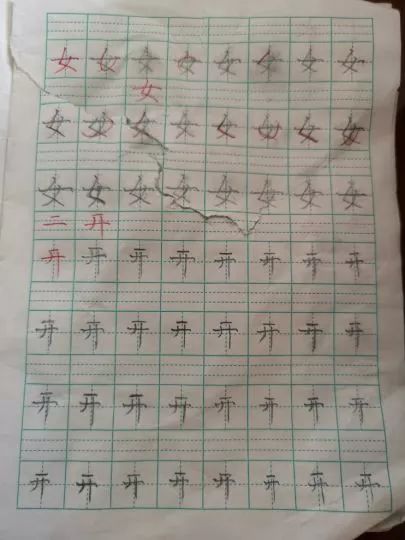 女 女 女 女 女 女 女 女
女
女 女 女 女 女 女 女 女
女 女 女 女 女 女 女 女
二 开
开 开 开 开 开 开 开 开
开 开 开 开 开 开 开 开
开 开 开 开 开 开 开 开
开 开 开 开 开 开 开 开